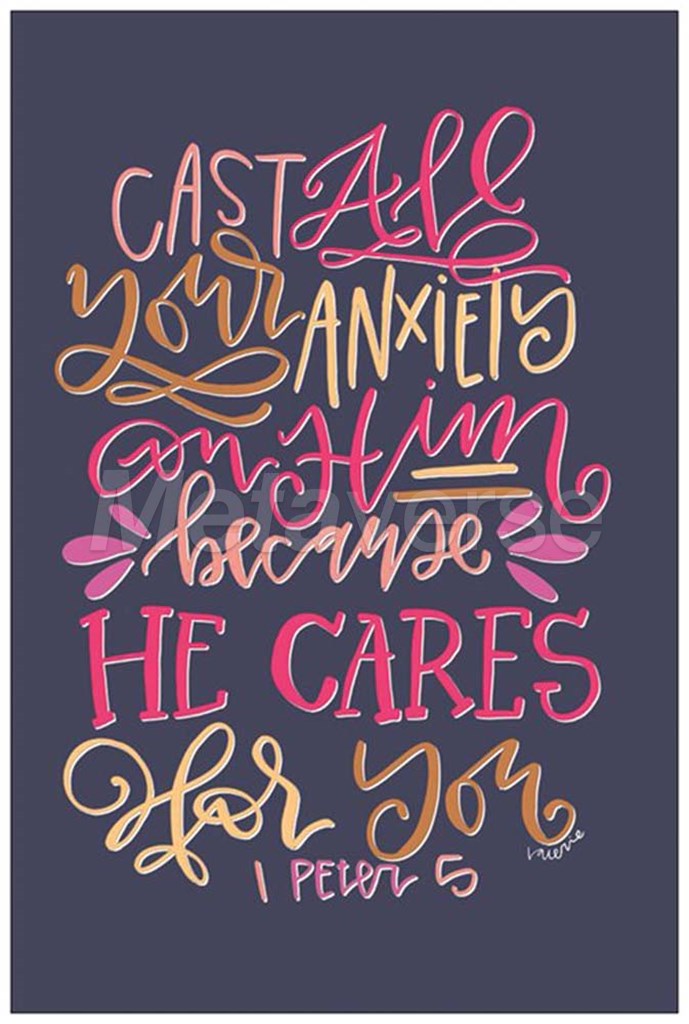 CAST All
your ANXIETY
on Him
because
Metaverse
HE CARES
for you
valerie
1 Peter 5